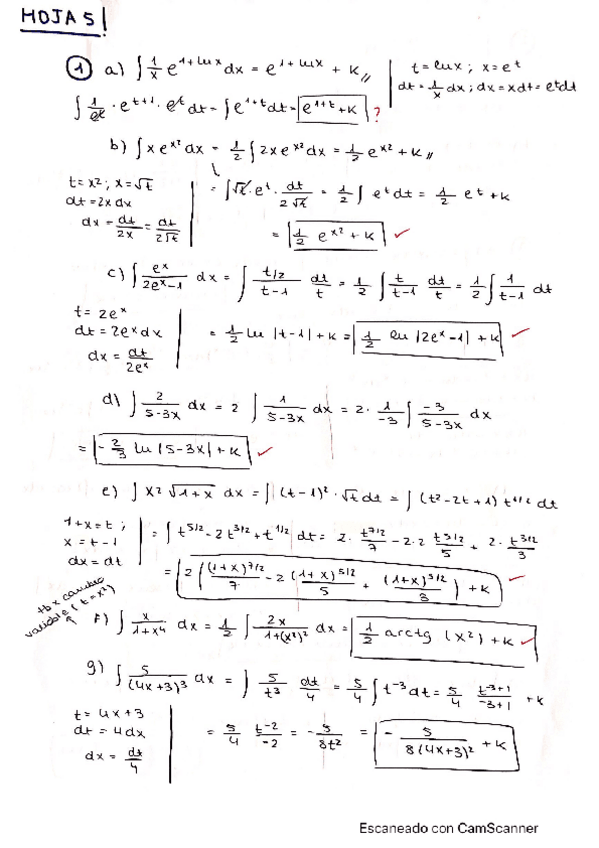 HOJA 5
① a) ∫ 1/x e^(1+lnx) dx = e^(1+lnx) + K,,
t = lnx ; x = e^t
dt = 1/x dx ; dx = x dt = e^t dt
∫ 1/e^t · e^(t+1) · e^t dt = ∫ e^(1+t) dt = e^(1+t) + K ?
b) ∫ x e^(x²) dx = 1/2 ∫ 2x e^(x²) dx = 1/2 e^(x²) + K,,
t = x² ; x = √t
dt = 2x dx
dx = dt/2x = dt/2√t
= ∫ √t · e^t · dt/2√t = 1/2 ∫ e^t dt = 1/2 e^t + K
= 1/2 e^(x²) + K ✓
c) ∫ e^x/(2e^x-1) dx = ∫ (t/2)/(t-1) dt/t = 1/2 ∫ t/(t-1) dt/t = 1/2 ∫ 1/(t-1) dt
t = 2e^x
dt = 2e^x dx
dx = dt/2e^x
= 1/2 ln |t-1| + K = 1/2 ln |2e^x-1| + K ✓
d) ∫ 2/(5-3x) dx = 2 ∫ 1/(5-3x) dx = 2 · 1/-3 ∫ -3/(5-3x) dx
= -2/3 ln |5-3x| + K ✓
e) ∫ x² √(1+x) dx = ∫ (t-1)² · √t dt = ∫ (t²-2t+1) t^(1/2) dt
1+x = t ;
x = t-1
dx = dt
= ∫ t^(5/2) - 2t^(3/2) + t^(1/2) dt = 2 · t^(7/2)/7 - 2·2 t^(5/2)/5 + 2 · t^(3/2)/3
= 2 ((1+x)^(7/2)/7 - 2 (1+x)^(5/2)/5 + (1+x)^(3/2)/3) + K ✓
tb x cambio
variable (t = x²)
f) ∫ x/(1+x⁴) dx = 1/2 ∫ 2x/(1+(x²)²) dx = 1/2 arctg (x²) + K ✓
g) ∫ 5/(4x+3)³ dx = ∫ 5/t³ dt/4 = 5/4 ∫ t^(-3) dt = 5/4 t^(-3+1)/(-3+1) + K
t = 4x+3
dt = 4dx
dx = dt/4
= 5/4 t^(-2)/-2 = -5/8t² = -5/(8(4x+3)²) + K
Escaneado con CamScanner